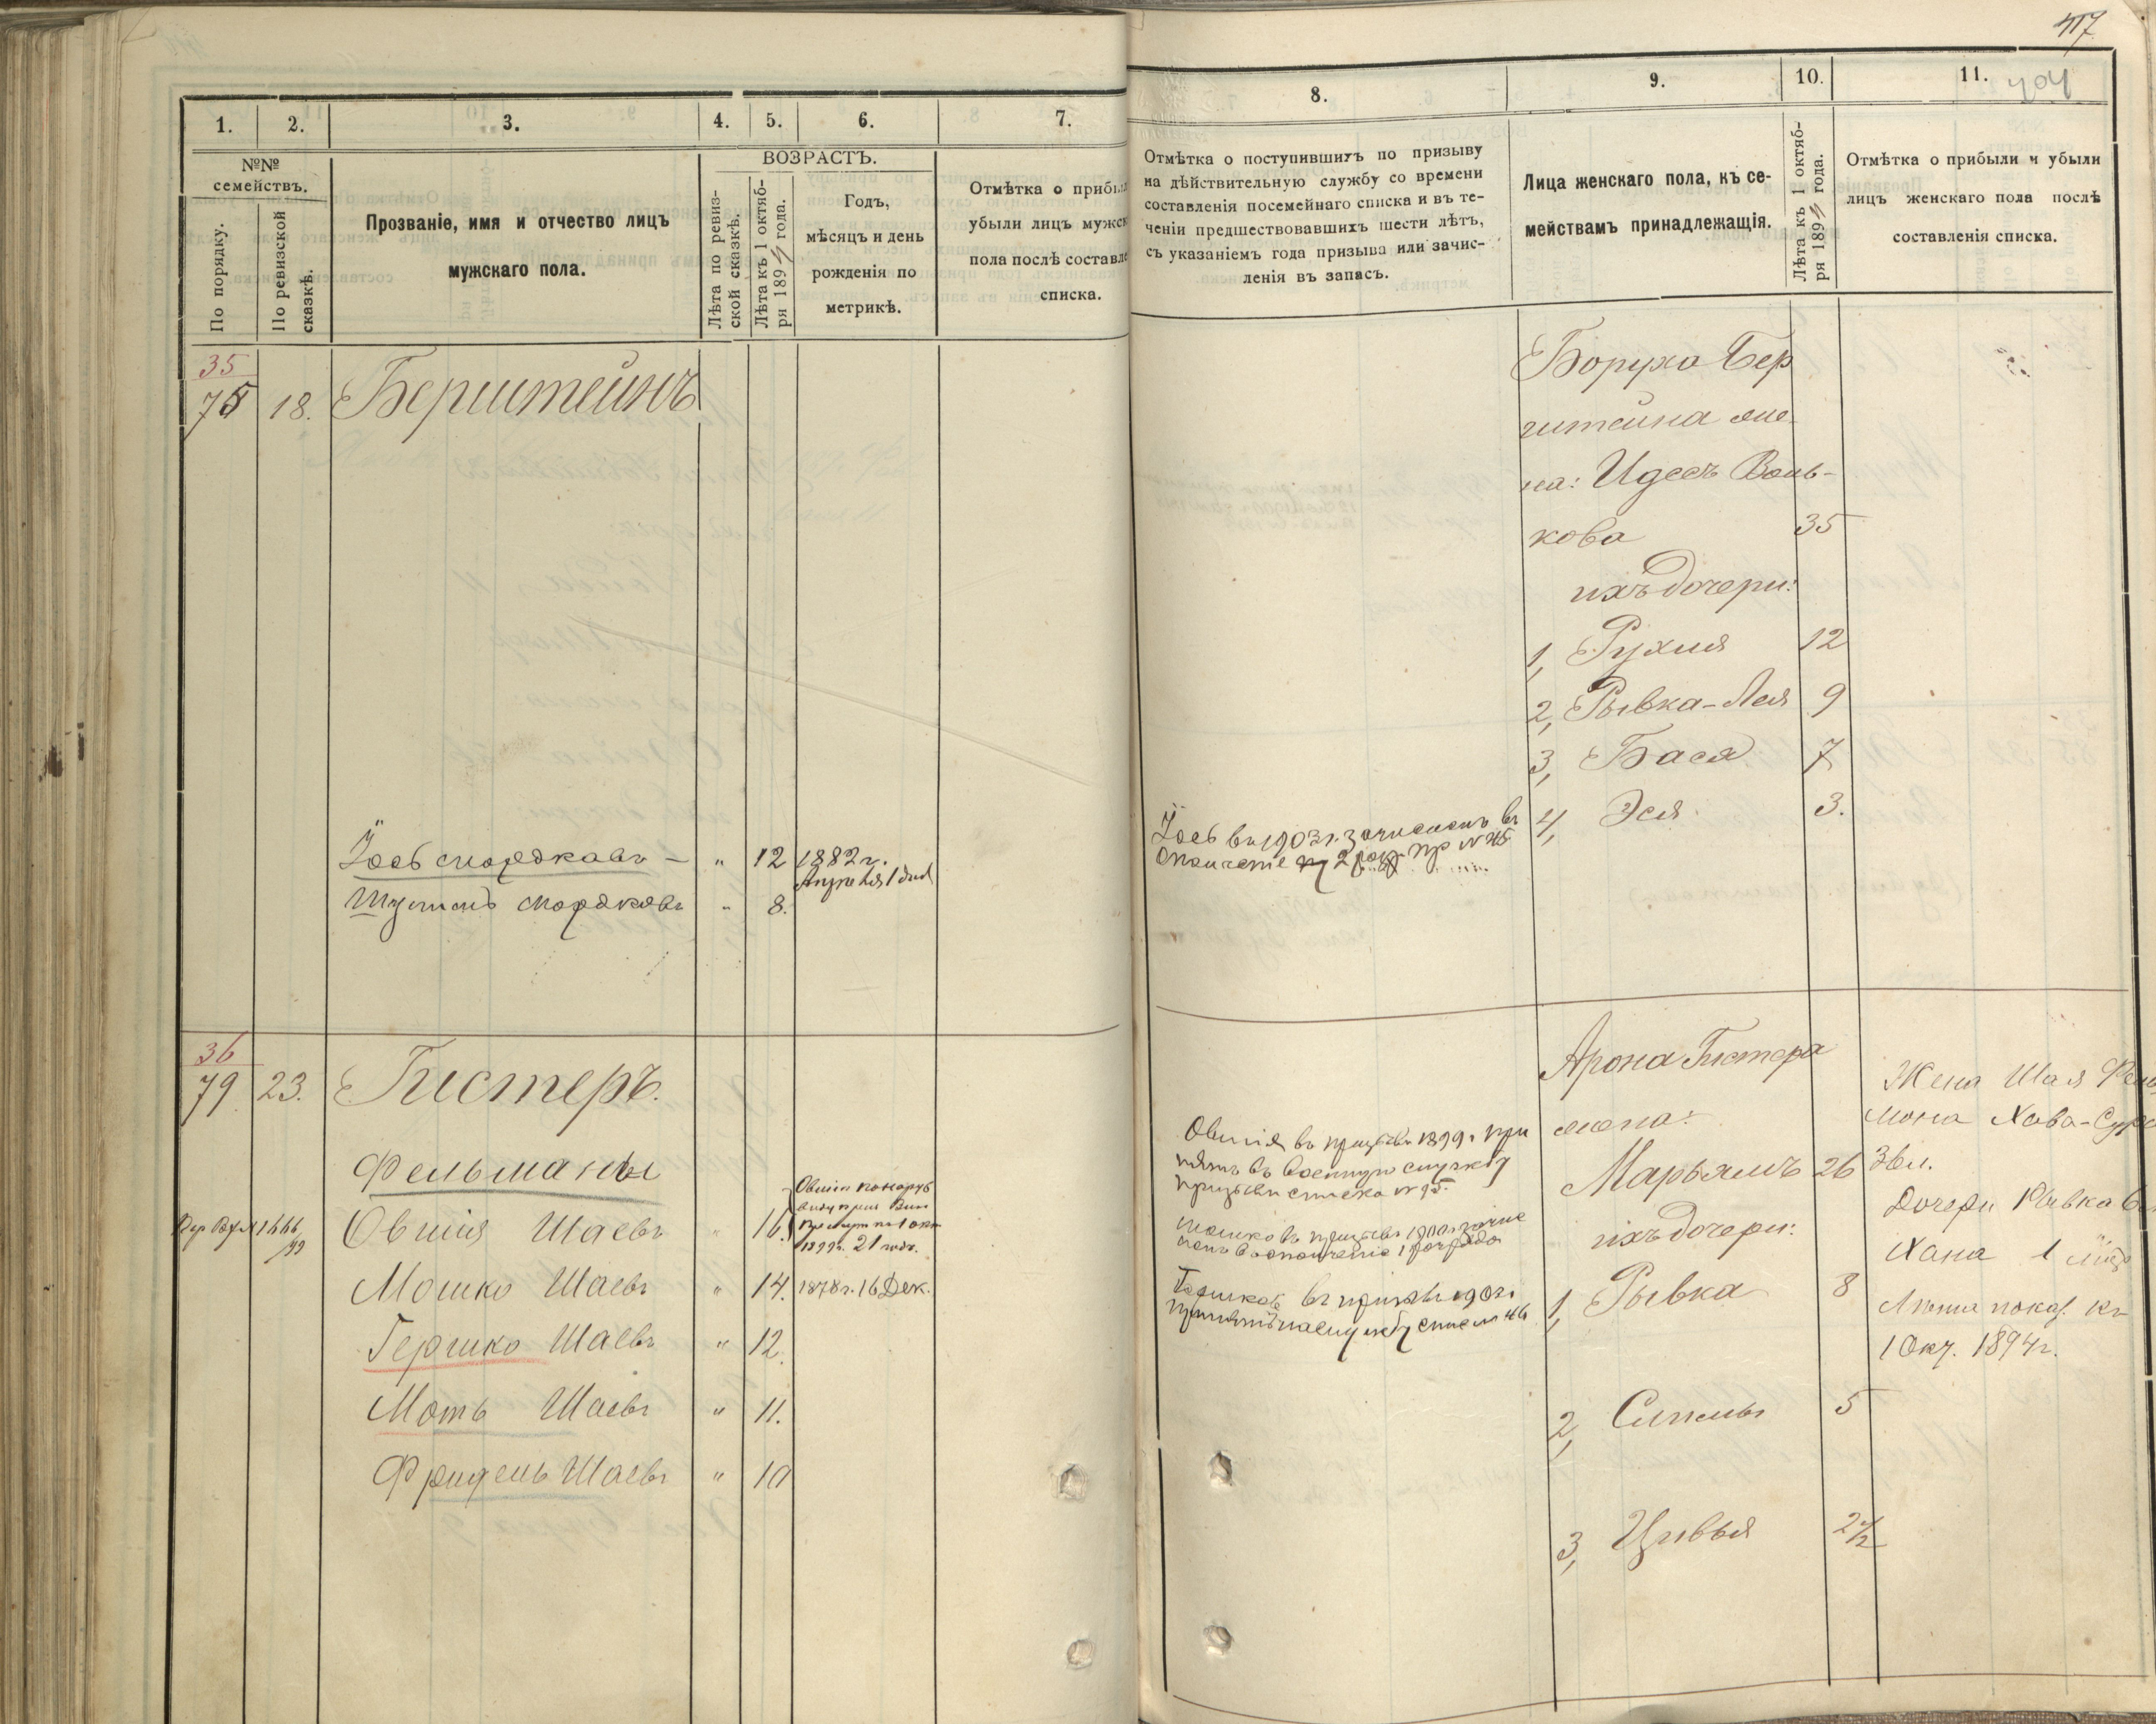 417
404
1.
2.
3.
4.
5.
6.
7.
№№
семействъ.
По порядку.
По ревизской
сказкѣ.
Прозваніе, имя и отчество лицъ
мужскаго пола.
ВОЗРАСТЪ.
Лѣта по ревиз-
ской сказкѣ.
Лѣта къ 1 октяб-
ря 1894 года.
Годъ,
мѣсяцъ и день
рожденія по
метрикѣ.
Отмѣтка о прибыл
убыли лицъ мужск
пола послѣ составле
списка.
35
75 18. Берштейнъ
Іось Мордковъ - " 12 1882 г.
Апрѣля 1 дня
Шулимъ Мордковъ " 8.
36
79 23. Гистеръ.
Фельманы
1466/99 Овшія Шаевъ " 16.
1899г. 21 годъ.
Мошко Шаевъ " 14. 1878 г. 16 Дек.
Гершко Шаевъ " 12.
Моть Шаевъ " 11.
Фридель Шаевъ " 10
8.
9.
10.
11.
Отмѣтка о поступившихъ по призыву
на дѣйствительную службу со времени
составленія посемейнаго списка и въ те-
ченіи предшествовавшихъ шести лѣтъ,
съ указаніемъ года призыва или зачис-
ленія въ запасъ.
Лица женскаго пола, къ се-
мействамъ принадлежащія.
Лѣта къ 1 октяб-
ря 1894 года.
Отмѣтка о прибыли и убыли
лицъ женскаго пола послѣ
составленія списка.
Боруха Бер
штейна же-
на: Идесъ Воль-
кова 35
ихъ дочери:
1, Рухля 12
2, Рывка-Лея 9
3, Бася 7
4, Эся 3.
Іось въ 1903 г. зачисленъ въ
ополченіе 2 разр. пр № 45
Арона Гистера
жена:
Марьямъ 26
ихъ дочери:
1, Рывка 8
2, Сипъ 5
3, Цивья 2 1/2
Овшія въ призывъ 1899 г при
нятъ въ военную службу
призывн списка № 95.
Мошко въ призывъ 1900 г. зачис
ленъ въ ополченіе 1 разряда
Гершко въ призывъ 1902 г
принятъ на службу спис № 46
Жена Шая Фель
мана Хава-Сура
36 л.
Дочери Рывка 6 л
Хана 1 годъ
Лѣта показ. къ
1 Окт. 1894 г.